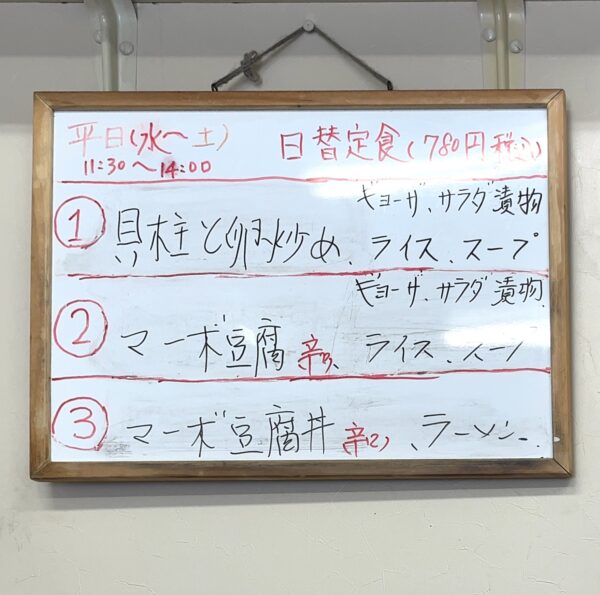 平日(水～土) 日替定食(780円税込)
11:30～14:00
ギョーザ、サラダ漬物
① 貝柱と卵炒め、ライス、スープ
ギョーザ、サラダ漬物
② マーボ豆腐 ライス、スープ
③ マーボ豆腐丼 、ラーメン